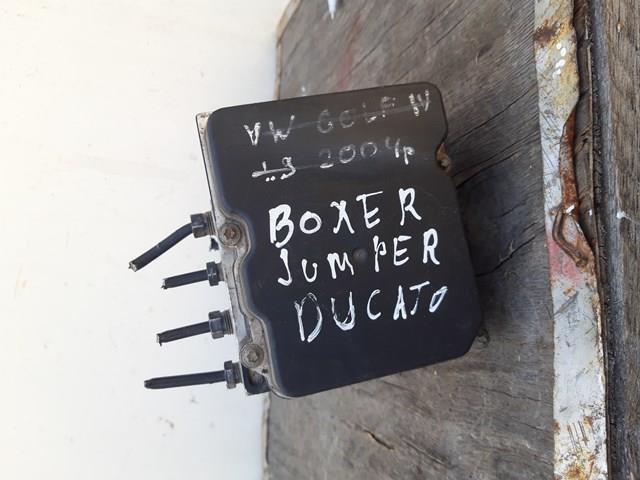 VW GOLF IV
1.9 2004р
BOXER
JUMPER
DUCATO